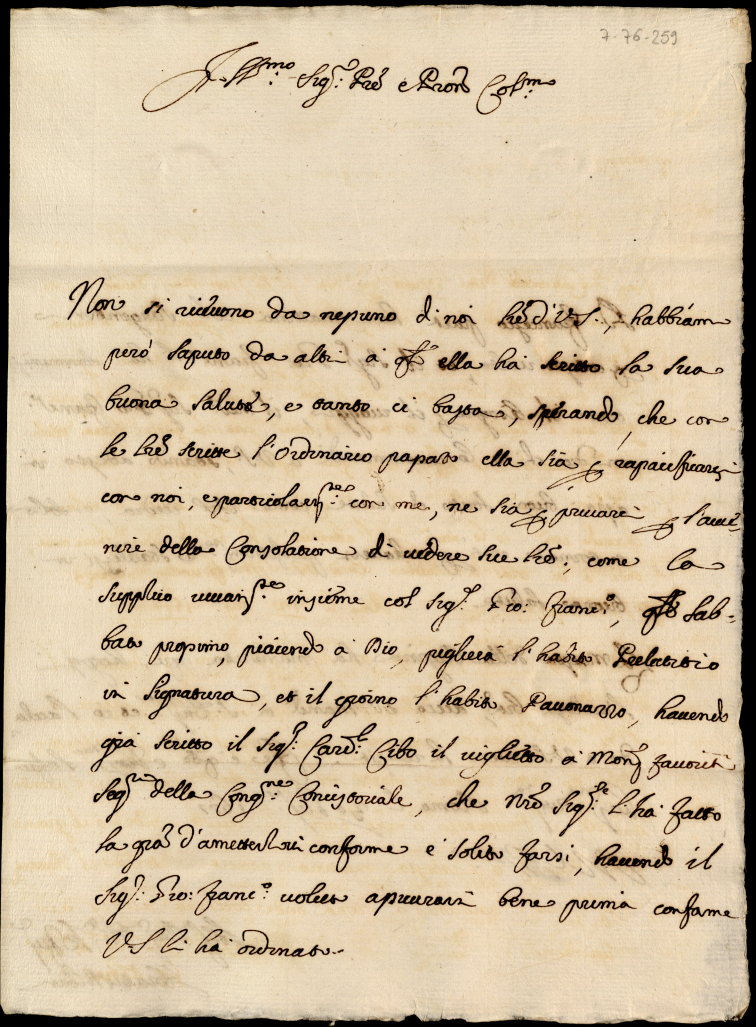 7-76-259
Ill.mo Sig.r Pré e Pron Col.mo
Non si riceuono da nessuno di noi lré di V.S., habbiam
però saputo da altri a q̃li ella hà scritto la sua
buona salute, e tanto ci basta, sperando, che con
le lré scritte l'Ordinario passato ella sia p rapacificarsi
con noi, e particolarm.te con me, ne sia p priuarci p l'auue-
nire della Consolatione di uedere sue lré, come la
supplico uiuam.te insieme col Sig.r Gio: Franc.o, Sab-
bato prossimo, piacendo à Dio, piglierà l'habito Prelatitio
in Signatura, et il giorno l'habito Pauonazzo, hauendo
già scritto il Sig.r Card.l Cibo il uiglietto à Mons.r Fauoriti
Seg.rio della Cong.ne Concistoriale, che Nrõ Sig.re l'hà fatto
la gra d'ametterlo conforme è solito farsi, hauendo il
Sig.r Gio: Franc.o uoluto bene prima conforme
V.S. li hà ordinato.